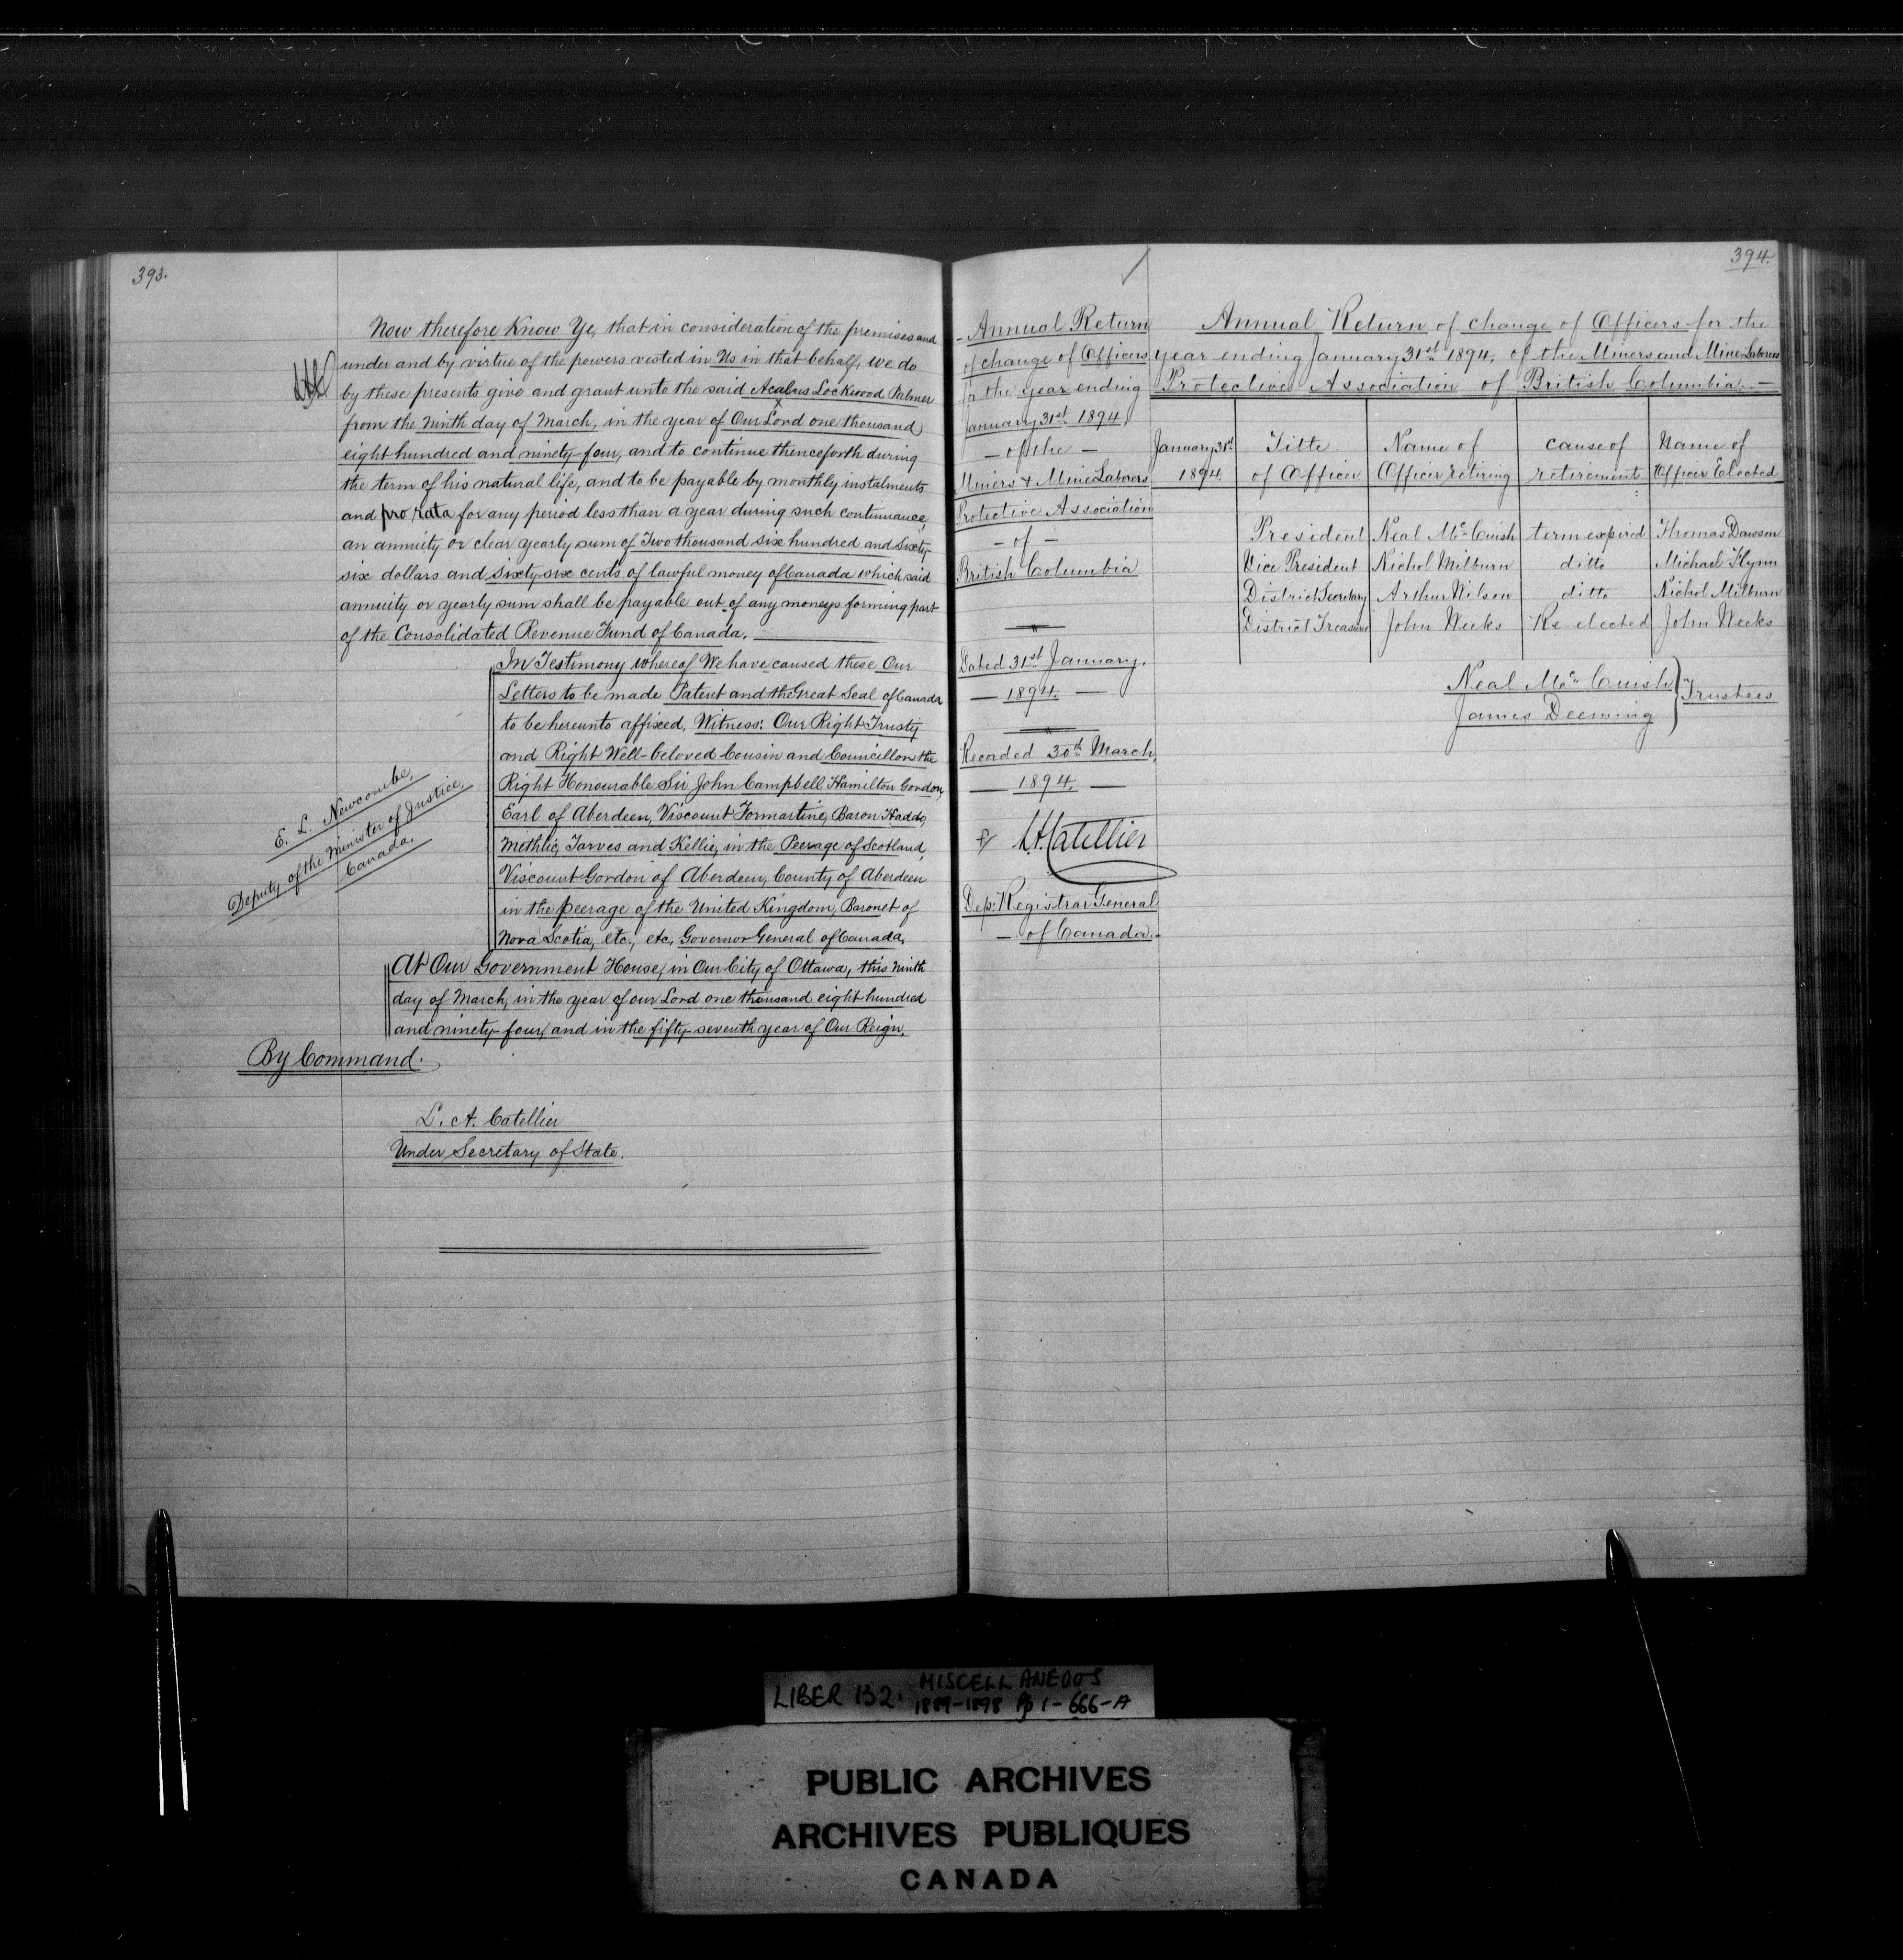 393.
Now therefore Know Ye, that in consideration of the premises and
under and by virtue of the powers vested in Us in that behalf, we do
by these presents give and grant unto the said Acalus Lockwood Palmer
from the Ninth day of March, in the year of Our Lord one thousand
eight hundred and ninety-four, and to continue thenceforth during
the term of his natural life, and to be payable by monthly instalments
and pro rata for any period less than a year during such continuance,
an annuity or clear yearly sum of Two thousand six hundred and Sixty-
six dollars and sixty-six cents of lawful money of Canada which said
annuity or yearly sum shall be payable out of any moneys forming part
of the Consolidated Revenue Fund of Canada.
In Testimony whereof We have caused these Our
Letters to be made Patent and the Great Seal of Canada
to be hereunto affixed, Witness: Our Right Trusty
and Right Well-beloved Cousin and Councillor the
Right Honourable Sir John Campbell Hamilton Gordon,
Earl of Aberdeen, Viscount Formartine, Baron Haddo,
Methlic, Tarves and Kellie, in the Peerage of Scotland,
Viscount Gordon of Aberdeen, County of Aberdeen
in the peerage of the United Kingdom, Baronet of
Nova Scotia, etc., etc, Governor General of Canada,
At Our Government House, in Our City of Ottawa, this ninth
day of March, in the year of our Lord one thousand eight hundred
and ninety-four, and in the fifty-seventh year of Our Reign.
E. L. Newcombe,
Deputy of the Minister of Justice,
Canada.
By Command.
L. A. Catellier
Under Secretary of State.
394.
Annual Return
of change of Officers
for the year ending
January 31st 1894,
- of the -
Miners & Mine Laborers
Protective Association
- of -
British Columbia
Dated 31st January.
— 1894. —
Recorded 30th March,
— 1894. —
L.A. Catellier
Dep: Registrar General
- of Canada. -
Annual Return of change of Officers for the
year ending January 31st 1894, of the Miners and Mine Laborers
Protective Association of British Columbia. —
January 31st Title Name of cause of Name of
1894. of Officer Officer retiring retirement Officer Elected
President Neal Mc Cuish term expired Thomas Dawson
Vice President Nichol Milburn ditto Michael Flynn
District Secretary Arthur Wilson ditto Nichol Milburn
District Treasurer John Weeks Re elected John Weeks
Neal Mc Cuish
James Deeming } Trustees
LIBER 132. MISCELLANEOUS
1889-1898 Pp 1-666-A
PUBLIC ARCHIVES
ARCHIVES PUBLIQUES
CANADA